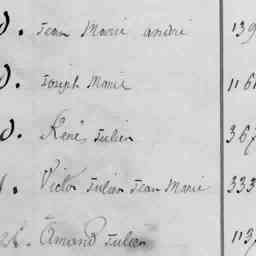 D. Jean Marie andré 139
D. Joseph Marie 116
D. René Julien 367
d. Victor Julien Jean Marie 333
d. Amand Julien 113